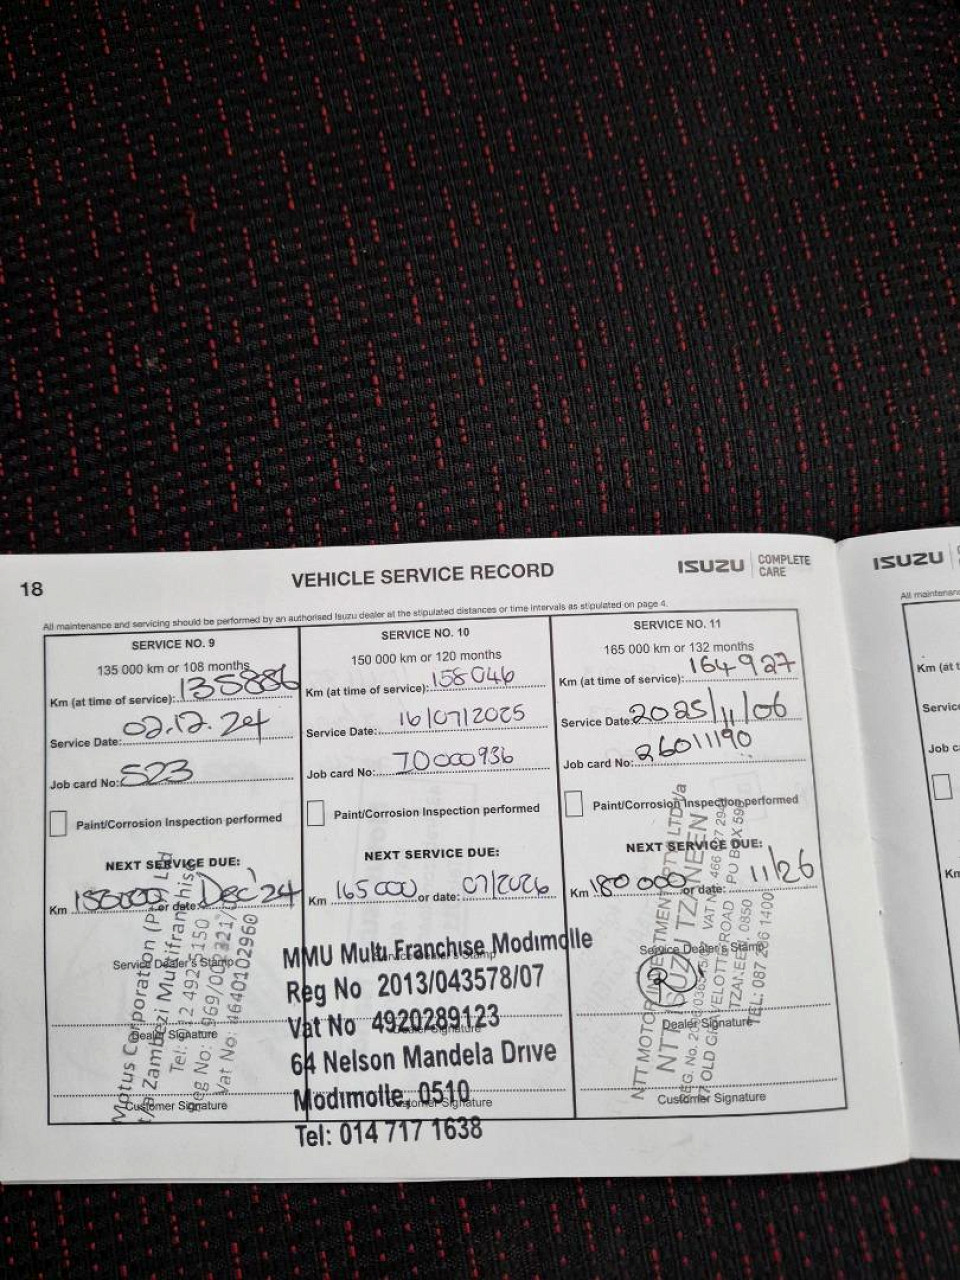 18
VEHICLE SERVICE RECORD
ISUZU COMPLETE CARE
All maintenance and servicing should be performed by an authorised Isuzu dealer at the stipulated distances or time intervals as stipulated on page 4.
SERVICE NO. 9
135 000 km or 108 months
Km (at time of service): 135886
Service Date: 02.12.24
Job card No: 523
Paint/Corrosion Inspection performed
NEXT SERVICE DUE:
Km 150000 or date: Dec'24
Service Dealer's Stamp
Dealer Signature
Customer Signature
Motus Corporation (P
t/a Zambezi Multifranchise
Tel: 012 4925150
Reg No:
Vat No: 4640102960
SERVICE NO. 10
150 000 km or 120 months
Km (at time of service): 158046
Service Date: 16/07/2025
Job card No: 70000936
Paint/Corrosion Inspection performed
NEXT SERVICE DUE:
Km 165000 or date: 07/2026
MMU Multi Franchise Modimolle
Reg No 2013/043578/07
Vat No 4920289123
64 Nelson Mandela Drive
Modimolle 0510
Tel: 014 717 1638
Service Dealer's Stamp
Dealer Signature
Customer Signature
SERVICE NO. 11
165 000 km or 132 months
Km (at time of service): 164927
Service Date: 2025/11/06
Job card No: 26011190
Paint/Corrosion Inspection performed
NEXT SERVICE DUE:
Km 180 000 or date: 11/26
Service Dealer's Stamp
Dealer Signature
Customer Signature
NTT MOTOR INVESTMENT PTY LTD t/a
NTT ISUZU TZANEEN
REG. No. VAT No.
OLD GRAVELOTTE ROAD PO BOX
TZANEEN, 0850
TEL: 087 286 1400
ISUZU
All maintenance
Km (at t
Service
Job c
Km